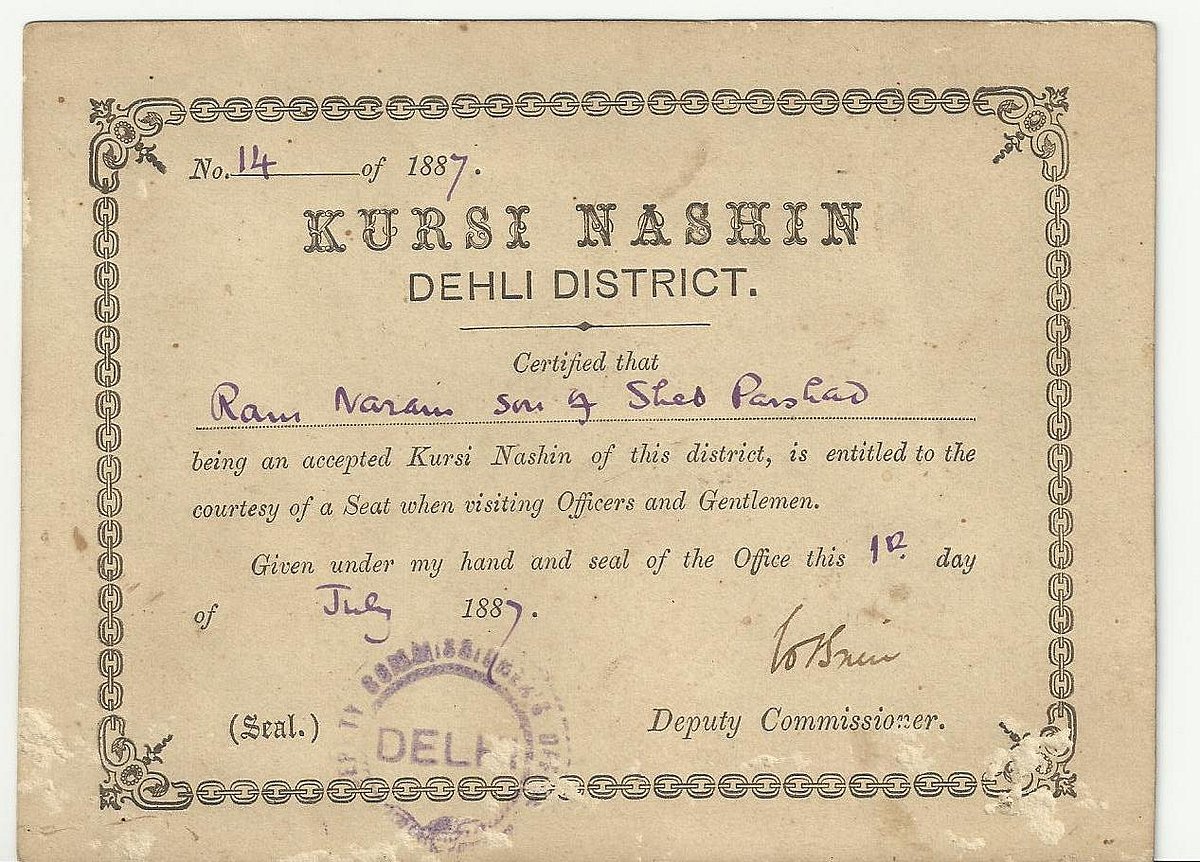 No. 14 of 1887.
KURSI NASHIN
DEHLI DISTRICT.
Certified that
Ram Narain son of Sheo Parshad
being an accepted Kursi Nashin of this district, is entitled to the
courtesy of a Seat when visiting Officers and Gentlemen.
Given under my hand and seal of the Office this 1st day
of July 1887.
(Seal.)
COMMISSIONER'S
DELHI
Deputy Commissioner.